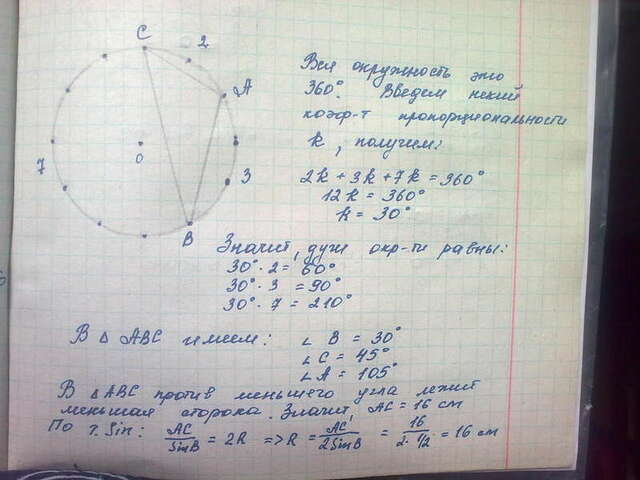 C
2
A
7
O
3
B
Вся окружность это
360°. Введем некий
коэф-т пропорциональности
k, получим:
2k + 3k + 7k = 360°
12k = 360°
k = 30°
Значит, дуги окр-ти равны:
30° · 2 = 60°
30° · 3 = 90°
30° · 7 = 210°
В △ ABC имеем: ∠ B = 30°
∠ C = 45°
∠ A = 105°
В △ABC против меньшего угла лежит
меньшая сторона. Значит AC = 16 см
По т. Sin: AC/SinB = 2R => R = AC/2SinB = 16/2·1/2 = 16 см